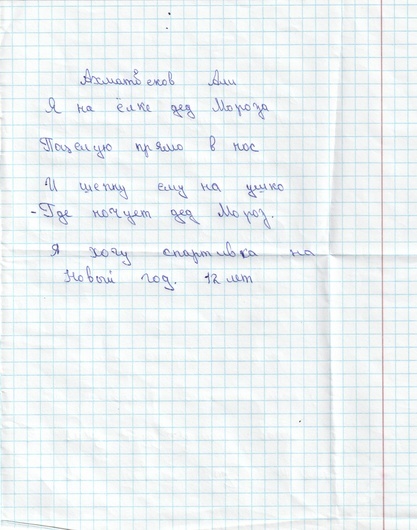 Ахматбеков Али
Я на ёлке дед Мороза
Поцелую прямо в нос
И шепну ему на ушко
- Где ночует дед Мороз.
Я хочу спартивка на
Новый год. 12 лет